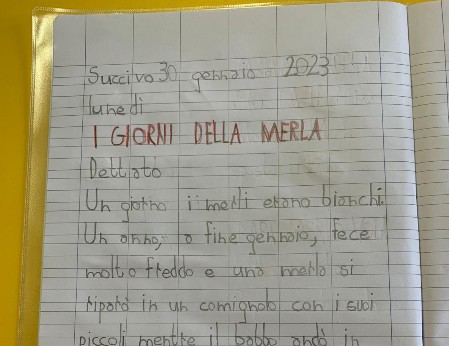 Succivo 30 gennaio 2023
lunedì
I GIORNI DELLA MERLA
Dettato
Un giorno i merli erano bianchi.
Un anno, a fine gennaio, fece
molto freddo e una merla si
riparò in un comignolo con i suoi
piccoli mentre il babbo andò in